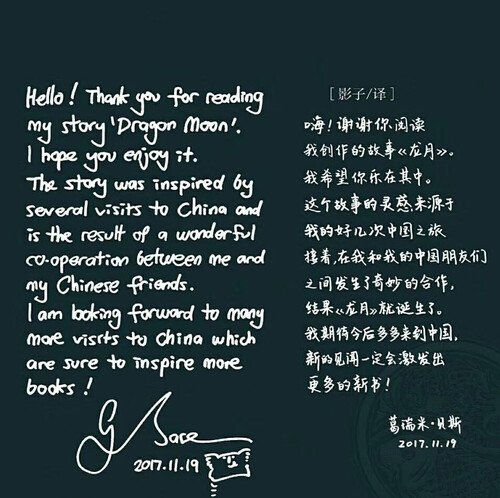 Hello! Thank you for reading
my story 'Dragon Moon'.
I hope you enjoy it.
The story was inspired by
several visits to China and
is the result of a wonderful
co-operation between me and
my Chinese friends.
I am looking forward to many
more visits to China which
are sure to inspire more
books!
2017.11.19
[影子/译]
嗨!谢谢你阅读
我创作的故事《龙月》。
我希望你乐在其中。
这个故事的灵感来源于
我的好几次中国之旅
接着,在我和我的中国朋友们
之间发生了奇妙的合作,
结果《龙月》就诞生了。
我期待今后多多来到中国,
新的见闻一定会激发出
更多的新书!
葛瑞米·贝斯
2017.11.19